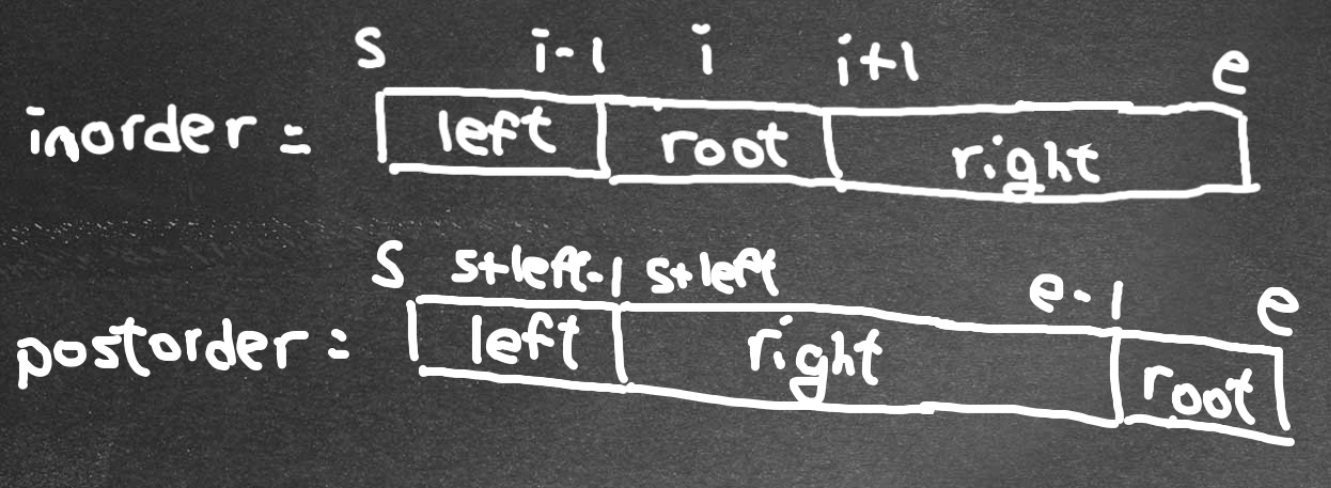 s i-1 i i+1 e
inorder = left root right
s s+left-1 s+left e-1 e
postorder = left right root